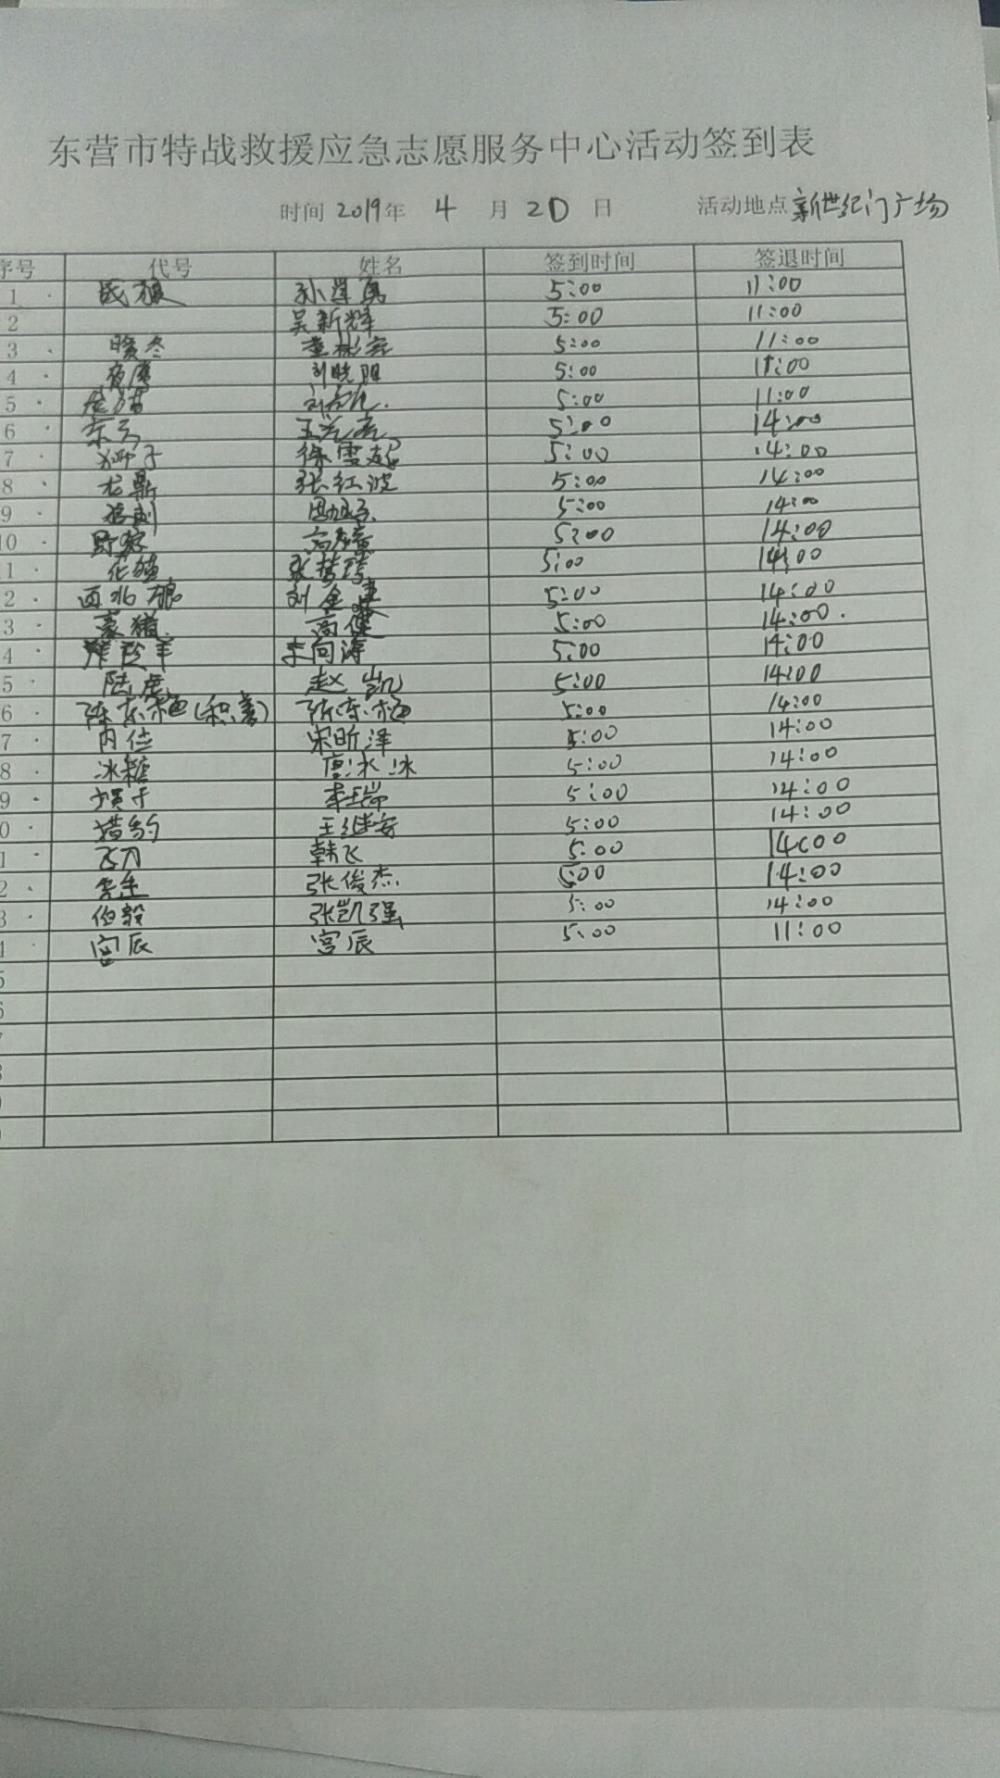 东营市特战救援应急志愿服务中心活动签到表
时间 2019年 4 月 20 日 活动地点 新世纪门广场
序号 代号 姓名 签到时间 签退时间
1 孙学勇 5:00 11:00
2 吴新辉 5:00 11:00
3 暖冬 5:00 11:00
4 夜鹰 刘晓阳 5:00 11:00
5 5:00 11:00
6 5:00 14:00
7 狮子 徐雲超 5:00 14:00
8 张红波 5:00 14:00
9 5:00 14:00
10 野狼 5:00 14:00
1 张梦琦 5:00 14:00
2 西北狼 刘金 5:00 14:00
3 豪猪 高健 5:00 14:00
4 李向涛 5:00 14:00
5 陆虎 赵凯 5:00 14:00
6 陈东梅(积善) 陈东梅 5:00 14:00
7 内位 宋昕泽 5:00 14:00
8 冰糖 唐冰冰 5:00 14:00
9 李瑞 5:00 14:00
0 猎豹 王继安 5:00 14:00
1 飞刀 韩飞 5:00 14:00
2 张俊杰 5:00 14:00
3 伯毅 张凯强 5:00 14:00
4 宫辰 宫辰 5:00 11:00
5
6